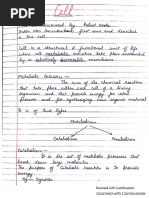 Cell
Cell discovered by Robert Hooke
Anton van Leeuwenhoek first saw and described
a live cell.
Cell is a structural & functional unit of life
where all metabolic activities take place surrounded
by a selectively permeable membrane.
Metabolic Activities :-
It is the sum of the chemical reactions
that take place within each cell of a living
organism and that provide energy for vital
process and for synthesizing new organic material.
It is of Two Types
Metabolism
Catabolism
Anabolism
Catabolism :-
It is the set of metabolic processes that
break down large molecules.
The purpose of catabolic reactions is to
provide the energy.
Eg:- Digestion
Scanned with CamScanner
Scanned with CamScanner